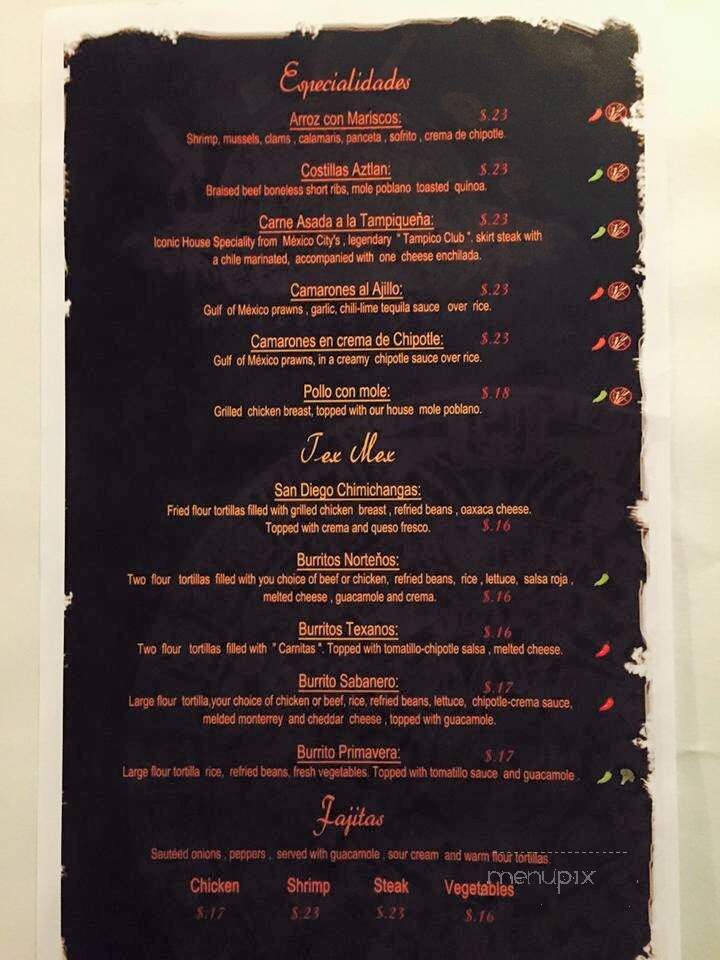 Especialidades
Arroz con Mariscos: $.23
Shrimp, mussels, clams , calamaris, panceta , sofrito , crema de chipotle.
Costillas Aztlan: $.23
Braised beef boneless short ribs, mole poblano toasted quinoa.
Carne Asada a la Tampiqueña: $.23
Iconic House Speciality from México City's , legendary " Tampico Club ". skirt steak with
a chile marinated, accompanied with one cheese enchilada.
Camarones al Ajillo: $.23
Gulf of México prawns , garlic, chili-lime tequila sauce over rice.
Camarones en crema de Chipotle: $.23
Gulf of México prawns, in a creamy chipotle sauce over rice.
Pollo con mole: $.18
Grilled chicken breast, topped with our house mole poblano.
Tex Mex
San Diego Chimichangas:
Fried flour tortillas filled with grilled chicken breast , refried beans , oaxaca cheese.
Topped with crema and queso fresco. $.16
Burritos Norteños:
Two flour tortillas filled with you choice of beef or chicken, refried beans, rice , lettuce, salsa roja ,
melted cheese , guacamole and crema. $.16
Burritos Texanos: $.16
Two flour tortillas filled with " Carnitas ". Topped with tomatillo-chipotle salsa , melted cheese.
Burrito Sabanero: $.17
Large flour tortilla,your choice of chicken or beef, rice, refried beans, lettuce, chipotle-crema sauce,
melded monterrey and cheddar cheese , topped with guacamole.
Burrito Primavera: $.17
Large flour tortilla rice, refried beans, fresh vegetables. Topped with tomatillo sauce and guacamole .
Fajitas
Sautéed onions , peppers , served with guacamole , sour cream and warm flour tortillas.
menupix
Chicken Shrimp Steak Vegetables
$.17 $.23 $.23 $.16